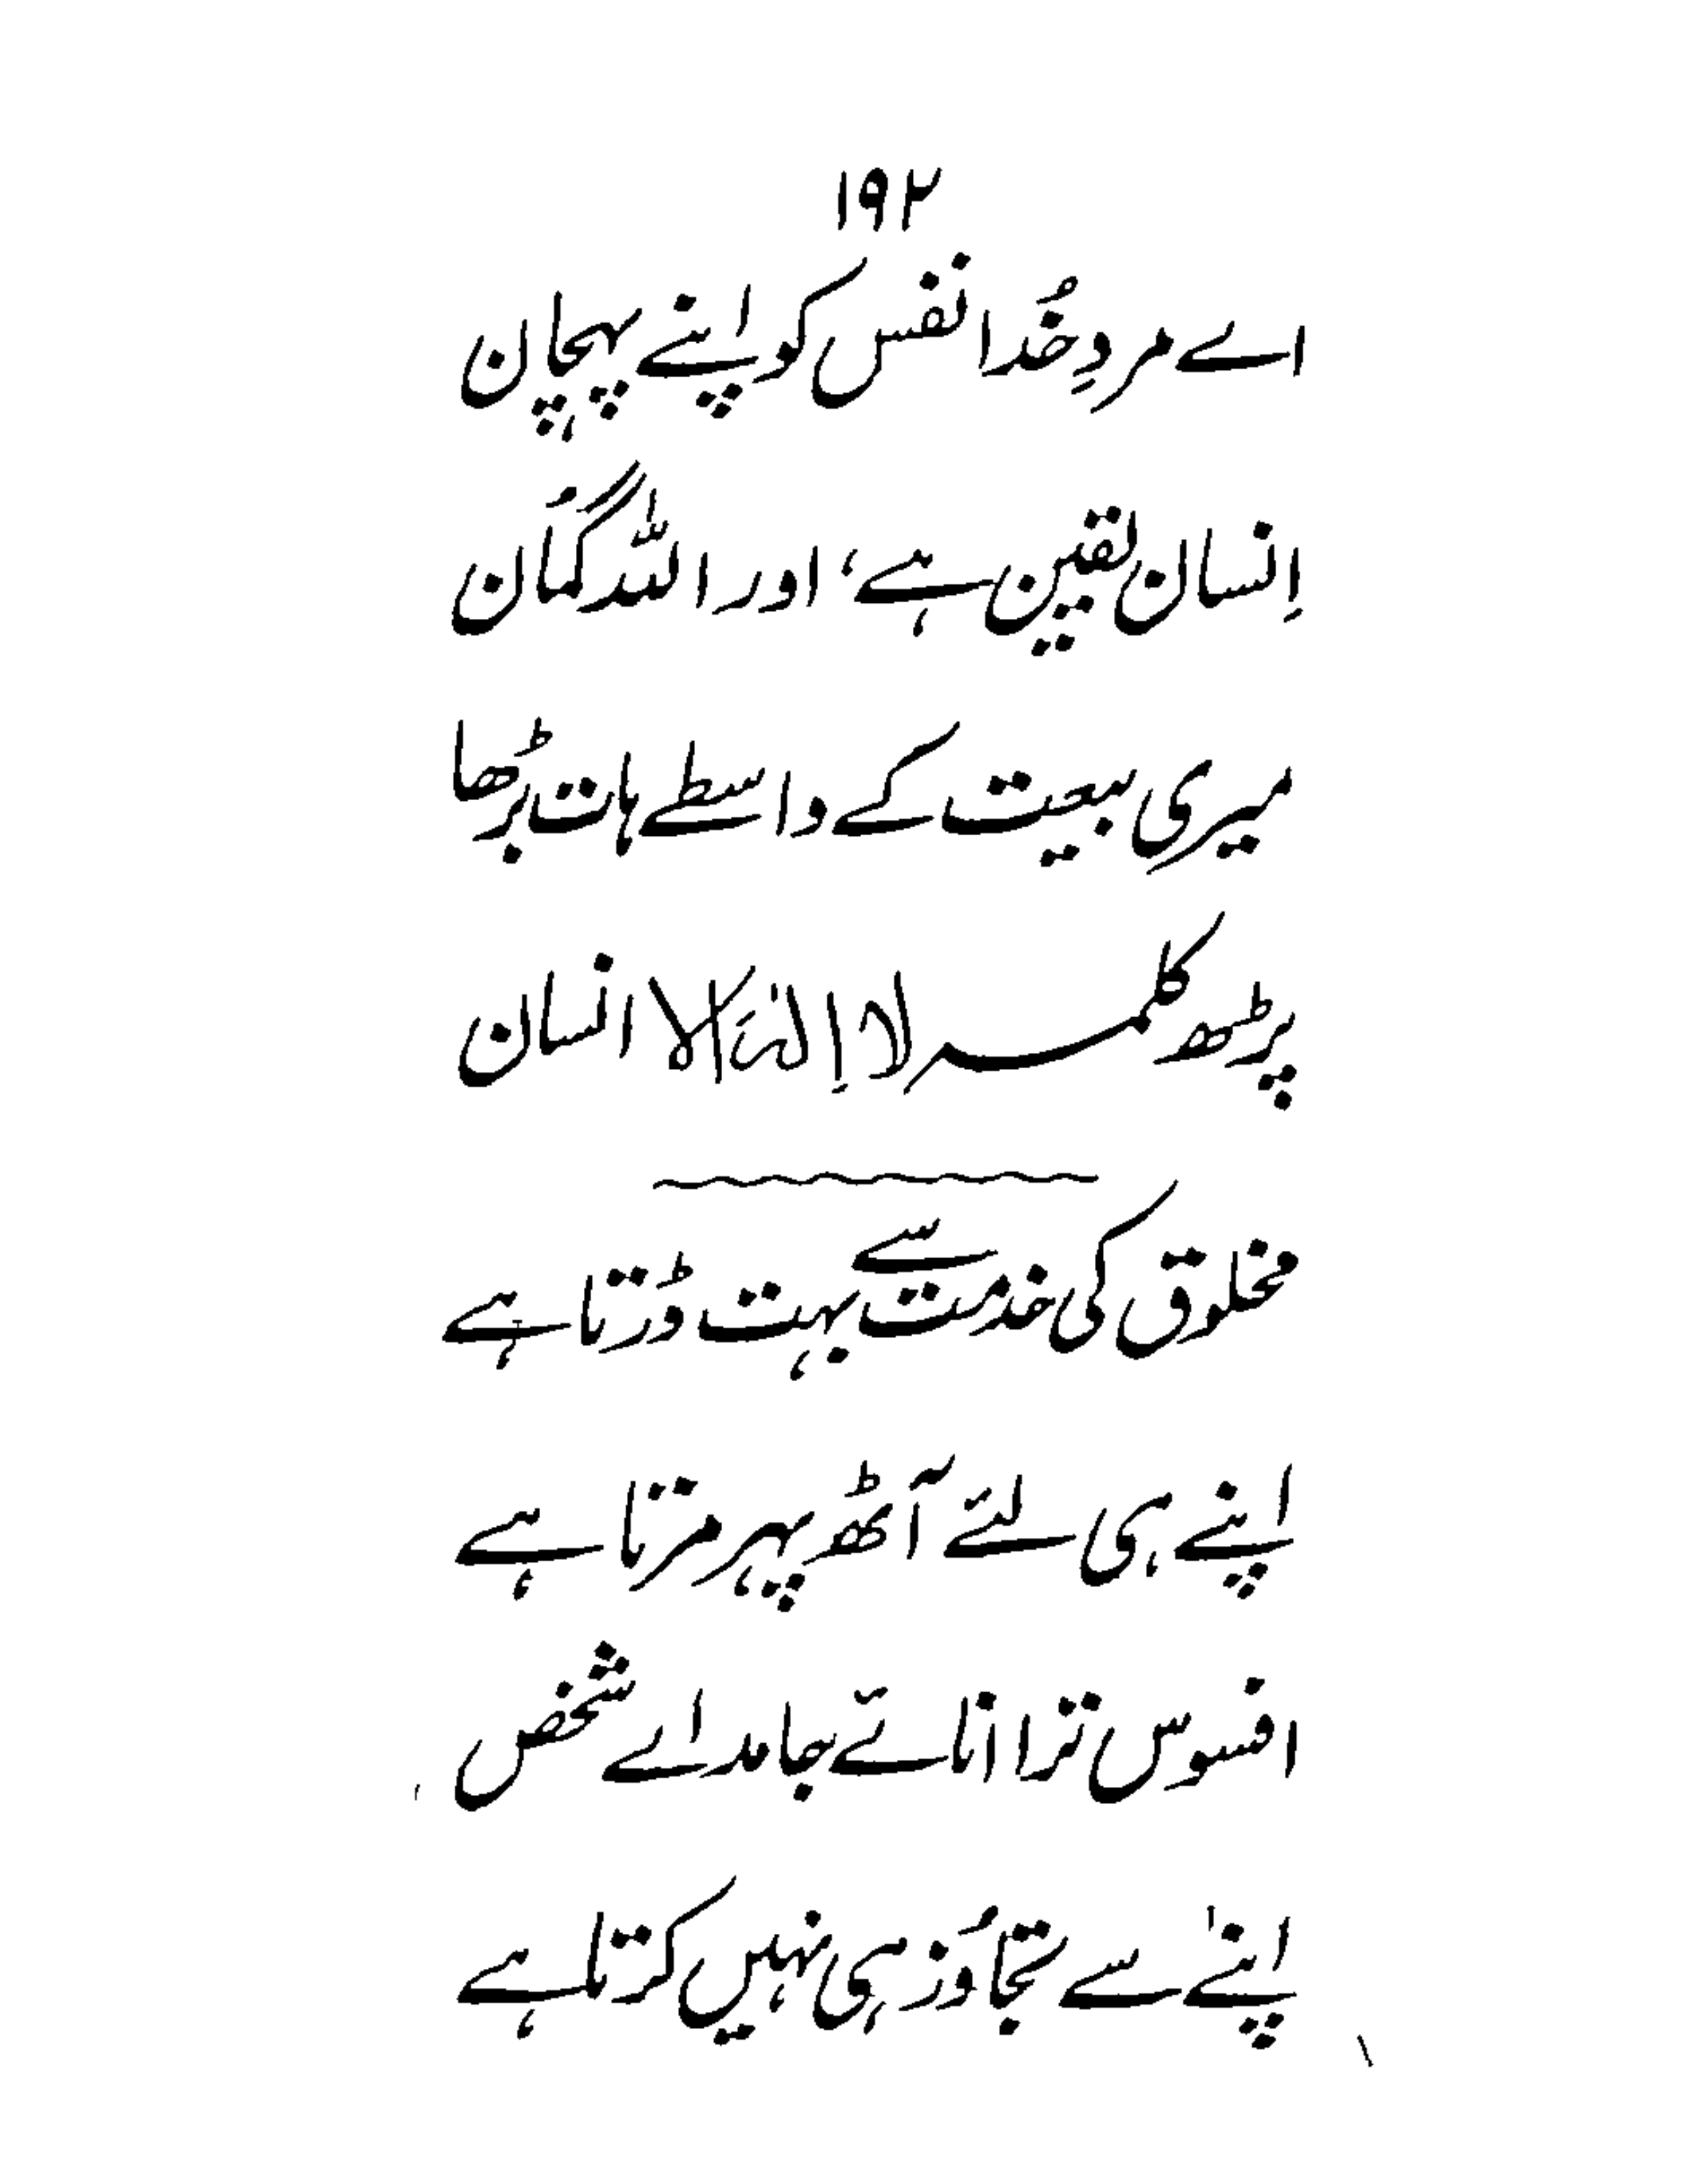 ۱۹۲
اے مردِ خُدا نفس کو اپنے پہچان
اِنسان یقین ہے، اور اللہ گمَان
میری بیعت کے واسطے ہات بڑھا
پڑھ کلمہ لا اِلٰہَ الا انسان
مخلوق کی خدمت سے بہت ڈرتا ہے
اپنے ہی لئے آٹھ پہر مرتا ہے
افسوس ترا انائے جامد اے شخص
اپنے سے تجاوُز ہی نہیں کرتا ہے